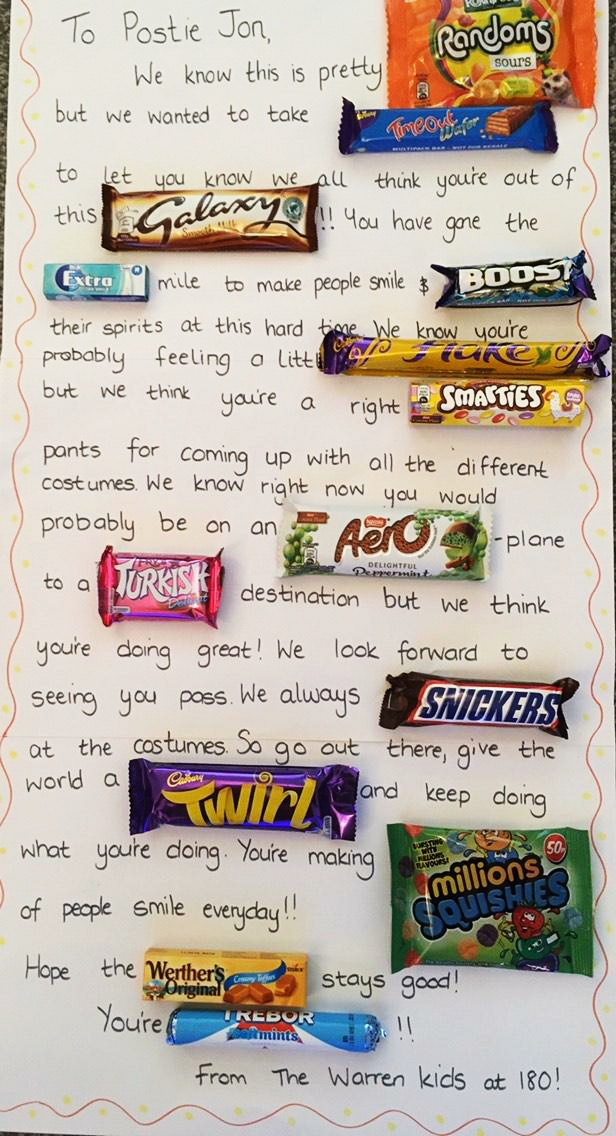 To Postie Jon,
We know this is pretty Randoms SOURS
but we wanted to take Cadbury TimeOut Wafer
MULTIPACK BAR - NOT FOR RESALE
to let you know we all think you're out of
this Galaxy Smooth Milk !! You have gone the
Extra mile to make people smile & BOOST
their spirits at this hard time. We know you're
probably feeling a littl Cadbury Flake
but we think you're a right SMARTIES
pants for coming up with all the different
costumes. We know right now you would
probably be on an Nestle Aero -plane
DELIGHTFUL
Peppermint
to a FRY'S TURKISH Delight destination but we think
you're doing great! We look forward to
seeing you pass. We always SNICKERS
at the costumes. So go out there, give the
world a Cadbury Twirl and keep doing
what you're doing. You're making BURSTING WITH MILLIONS FLAVOURS! 50p
millions SQUISHIES
of people smile everyday!!
Hope the Werther's Original Creamy Toffees STORCK stays good!
You're TREBOR Softmints !!
From The Warren kids at 180!